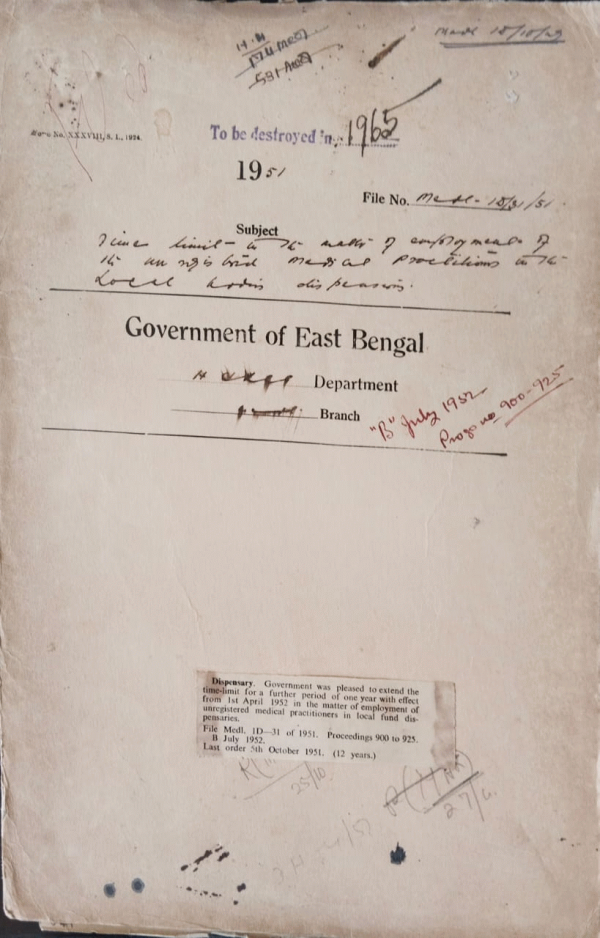 H.H
174 Med
531 Med
Medl 1D/10/49
Form No. XXXVIII, S. I., 1924.
To be destroyed in 1965
1951
File No. Medl - 1D/31/51
Subject
Time limit in the matter of employment of
the unregistered medical Practitioners in the
Local bodies dispensaries.
Government of East Bengal
Department
Branch
"B" July 1952
Progs no 900-925
Dispensary. Government was pleased to extend the
time-limit for a further period of one year with effect
from 1st April 1952 in the matter of employment of
unregistered medical practitioners in local fund dis-
pensaries.
File Medl. 1D—31 of 1951. Proceedings 900 to 925.
B July 1952.
Last order 5th October 1951. (12 years.)
25/10
27/6